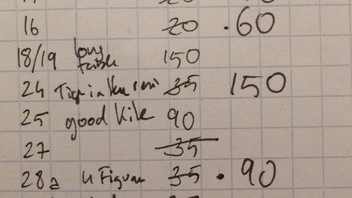 16 20 .60
18/19 long table 150
24 35 150
25 good Kile 90
27 35
28a 4 Figuren 35 . 90